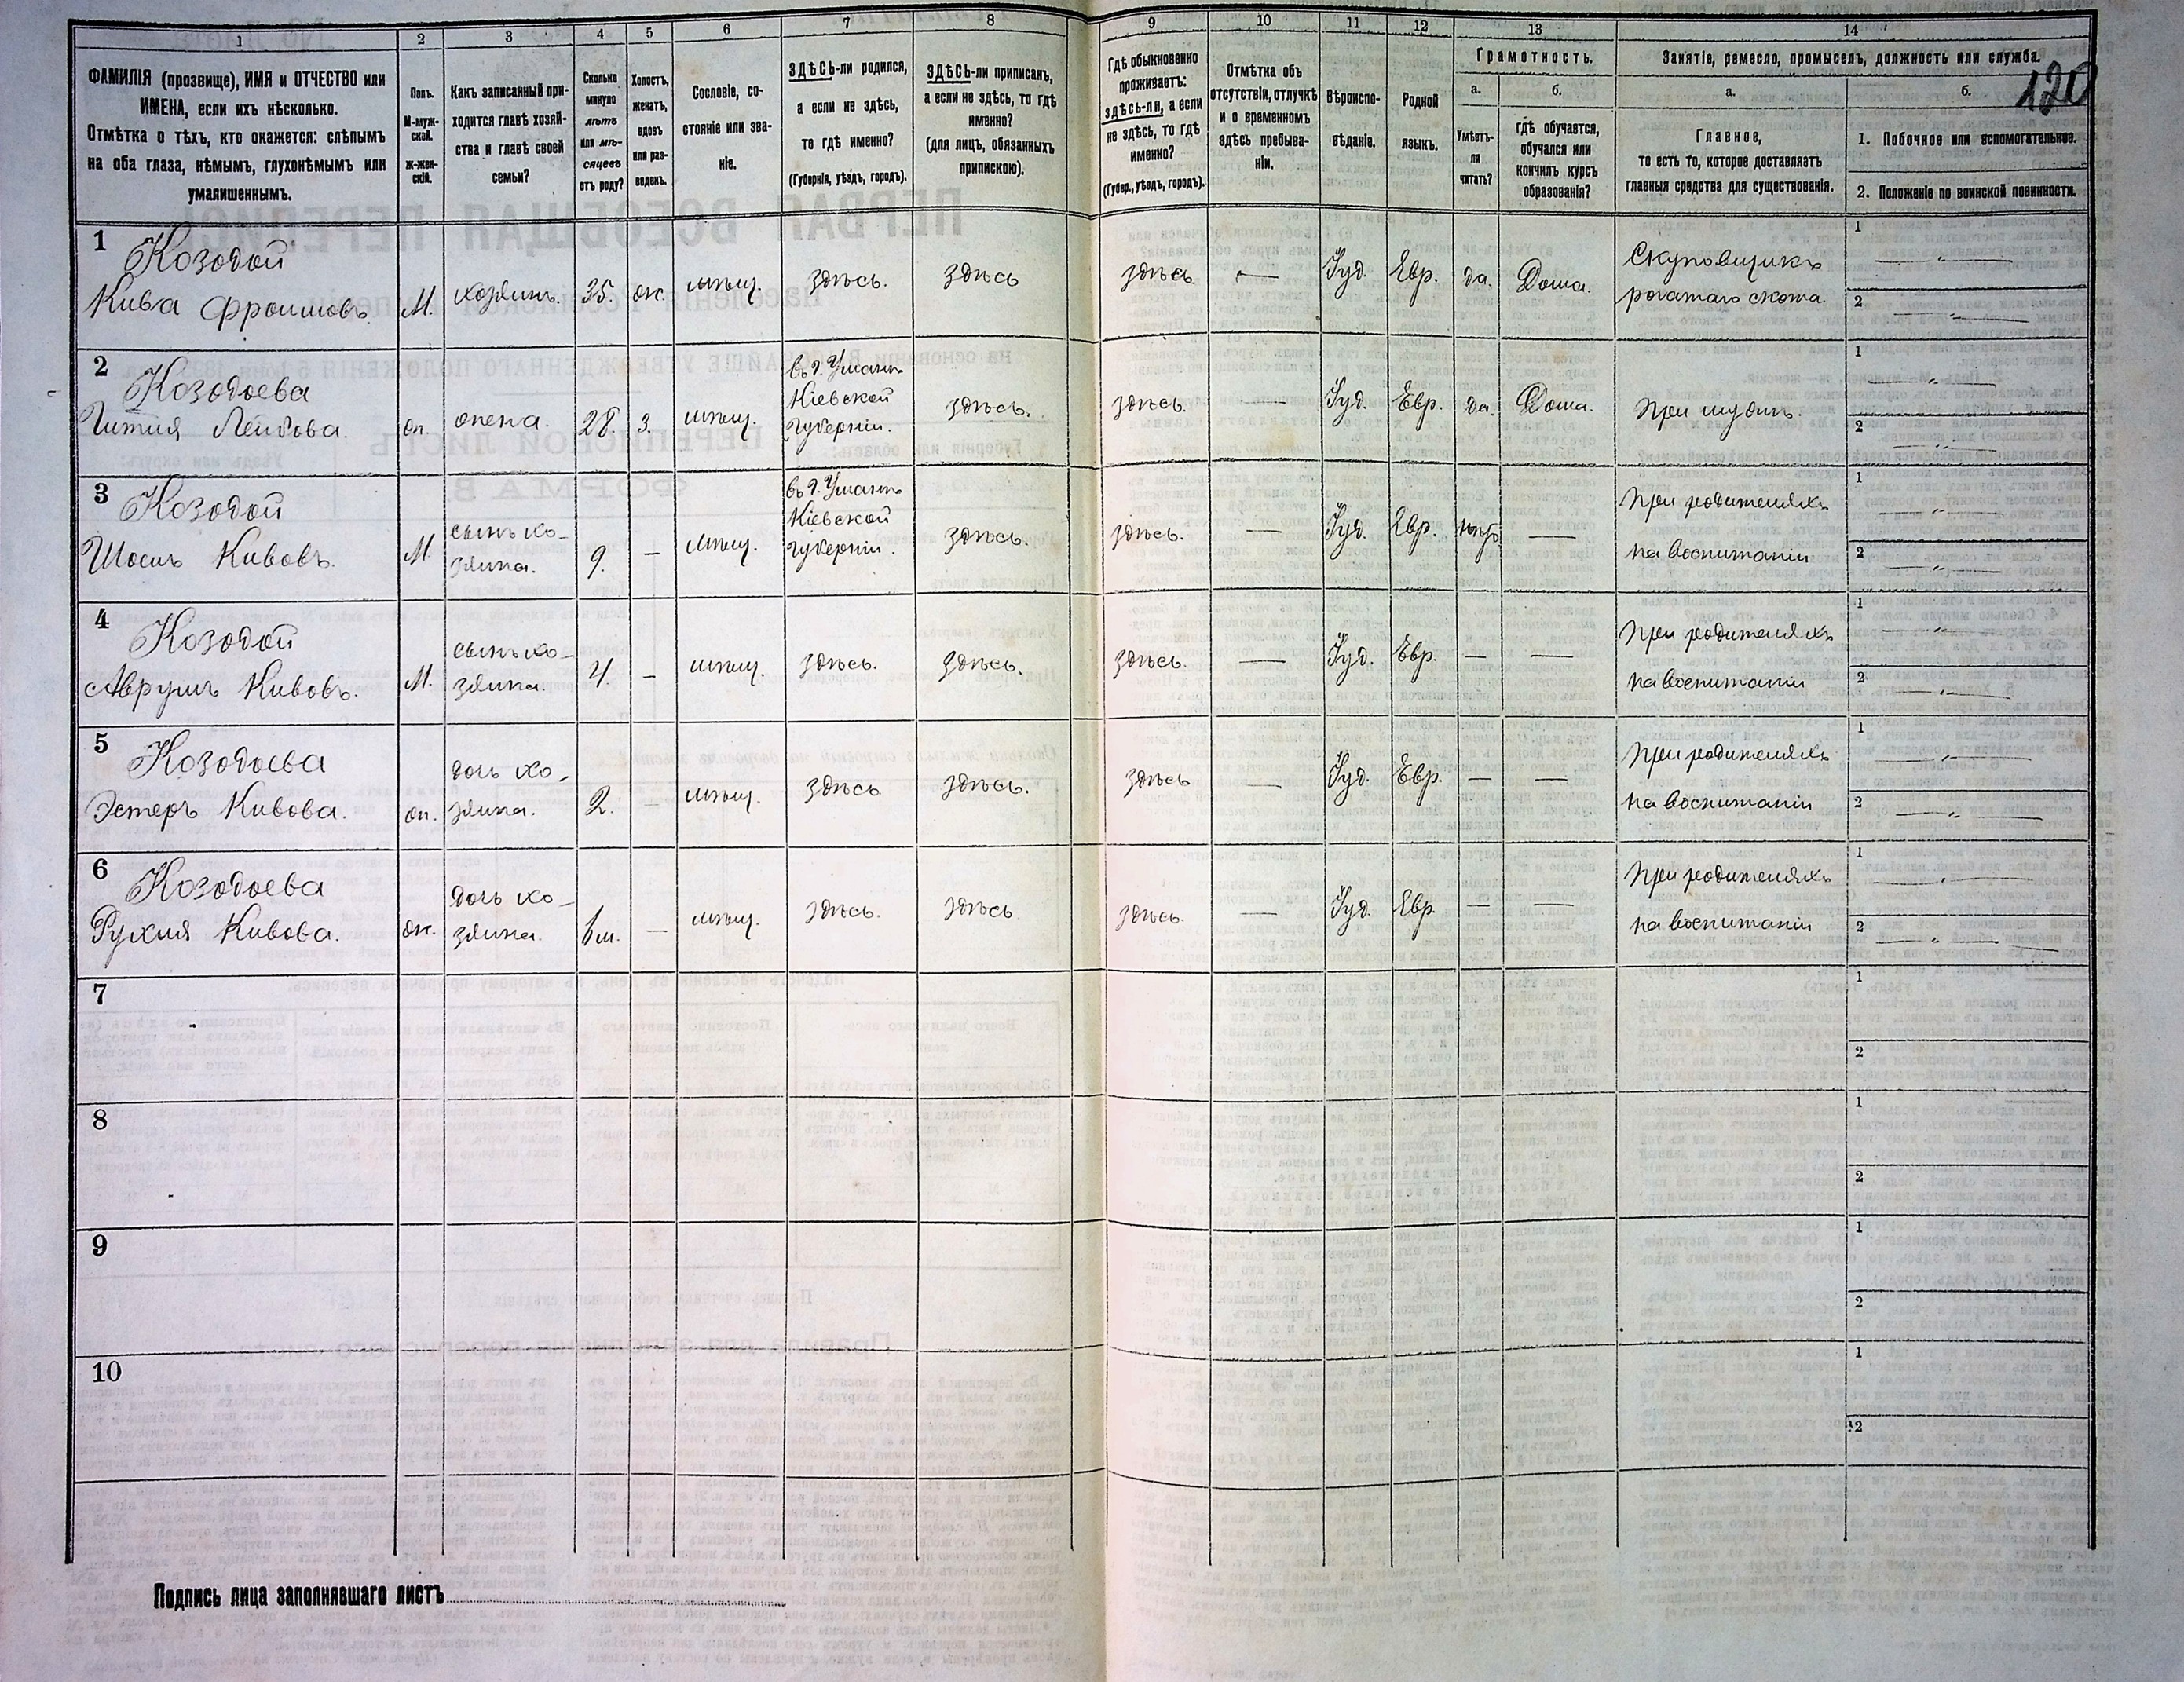 120
1 2 3 4 5 6 7 8 9 10 11 12 13 14
ФАМИЛІЯ (прозвище), ИМЯ и ОТЧЕСТВО или
ИМЕНА, если ихъ нѣсколько.
Отмѣтка о тѣхъ, кто окажется: слѣпымъ
на оба глаза, нѣмымъ, глухонѣмымъ или
умалишеннымъ.
Полъ.
М-муж-
ской.
Ж-жен-
скій.
Какъ записанный при-
ходится главѣ хозяй-
ства и главѣ своей
семьи?
Сколько
минуло
лѣтъ
или мѣ-
сяцевъ
отъ роду?
Холостъ,
женатъ,
вдовъ
или раз-
веденъ.
Сословіе, со-
стояніе или зва-
ніе.
ЗДѢСЬ-ли родился,
а если не здѣсь,
то гдѣ именно?
(Губернія, уѣздъ, городъ).
ЗДѢСЬ-ли приписанъ,
а если не здѣсь, то гдѣ
именно?
(для лицъ, обязанныхъ
припискою).
Гдѣ обыкновенно
проживаетъ:
здѣсь-ли, а если
не здѣсь, то гдѣ
именно?
(Губер., уѣздъ, городъ).
Отмѣтка объ
отсутствіи, отлучкѣ
и о временномъ
здѣсь пребыва-
ніи.
Вѣроиспо-
вѣданіе.
Родной
языкъ.
Грамотность.
а.
Умѣетъ-
ли
читать?
б.
гдѣ обучается,
обучался или
кончилъ курсъ
образованія?
Занятіе, ремесло, промыселъ, должность или служба.
а.
Главное,
то есть то, которое доставляетъ
главныя средства для существованія.
б.
1. Побочное или вспомогательное.
2. Положеніе по воинской повинности.
1
Козодой
Кива Фроимовъ
М.
хозяинъ.
35.
ж.
мѣщ.
здѣсь.
здѣсь
здѣсь
—
Іуд.
Евр.
да.
Дома.
Скуповщикъ
рогатаго скота
1 —„—
2 —„—
2
Козодоева
Гитля Лейбова.
ж.
жена.
28.
з.
мѣщ.
въ г. Умани
Кіевской
губерніи.
здѣсь.
здѣсь.
—
Іуд.
Евр.
да.
Дома.
При мужѣ.
1 —„—
2 —„—
3
Козодой
Кивовъ.
М
сынъ хо-
зяина.
9.
—
мѣщ.
въ г. Умани
Кіевской
губерніи.
здѣсь.
здѣсь.
—
Іуд.
Евр.
—
При родителяхъ
на воспитаніи
1 —„—
2 —„—
4
Козодой
Аврумъ Кивовъ.
М.
сынъ хо-
зяина.
4.
—
мѣщ.
здѣсь.
здѣсь.
здѣсь.
—
Іуд.
Евр.
—
—
При родителяхъ
на воспитаніи
1 —„—
2 —„—
5
Козодоева
Эстеръ Кивова.
ж.
дочь хо-
зяина.
2.
—
мѣщ.
здѣсь
здѣсь.
здѣсь
—
Іуд.
Евр.
—
—
При родителяхъ
на воспитаніи
1 —„—
2 —„—
6
Козодоева
Рухля Кивова.
ж.
дочь хо-
зяина.
6 м.
—
мѣщ.
здѣсь.
здѣсь
здѣсь.
—
Іуд.
Евр.
—
—
При родителяхъ
на воспитаніи
1 —„—
2 —„—
7
1
2
8
1
2
9
1
2
10
1
2
Подпись лица заполнявшаго листъ